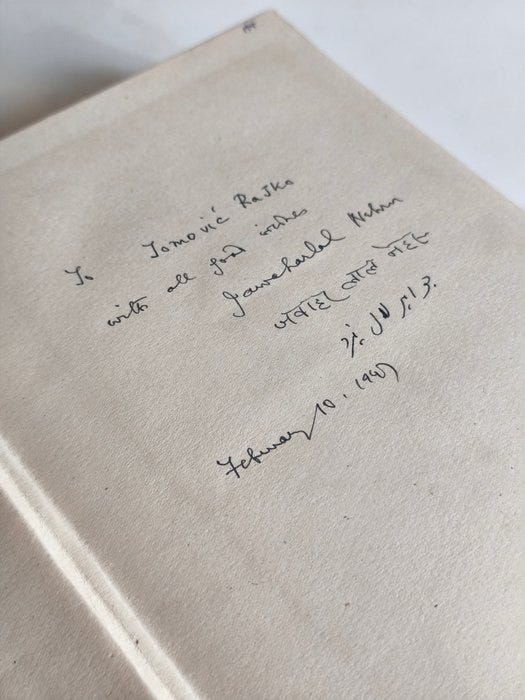 To Tomović Rajko
with all good wishes
Jawaharlal Nehru
जवाहरलाल नेहरू
جواہر لال نہرو
February 10, 1947